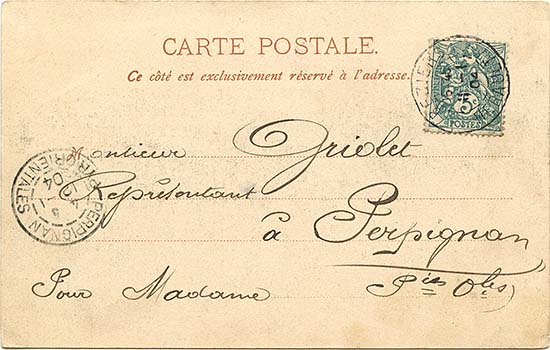 CARTE POSTALE.
Ce côté est exclusivement réservé à l'adresse.
5c
POSTES
Monsieur Griolet
Représentant
à Perpignan
Pies Oles
Pour Madame
PERPIGNAN
PYR. ORIENTALES
04